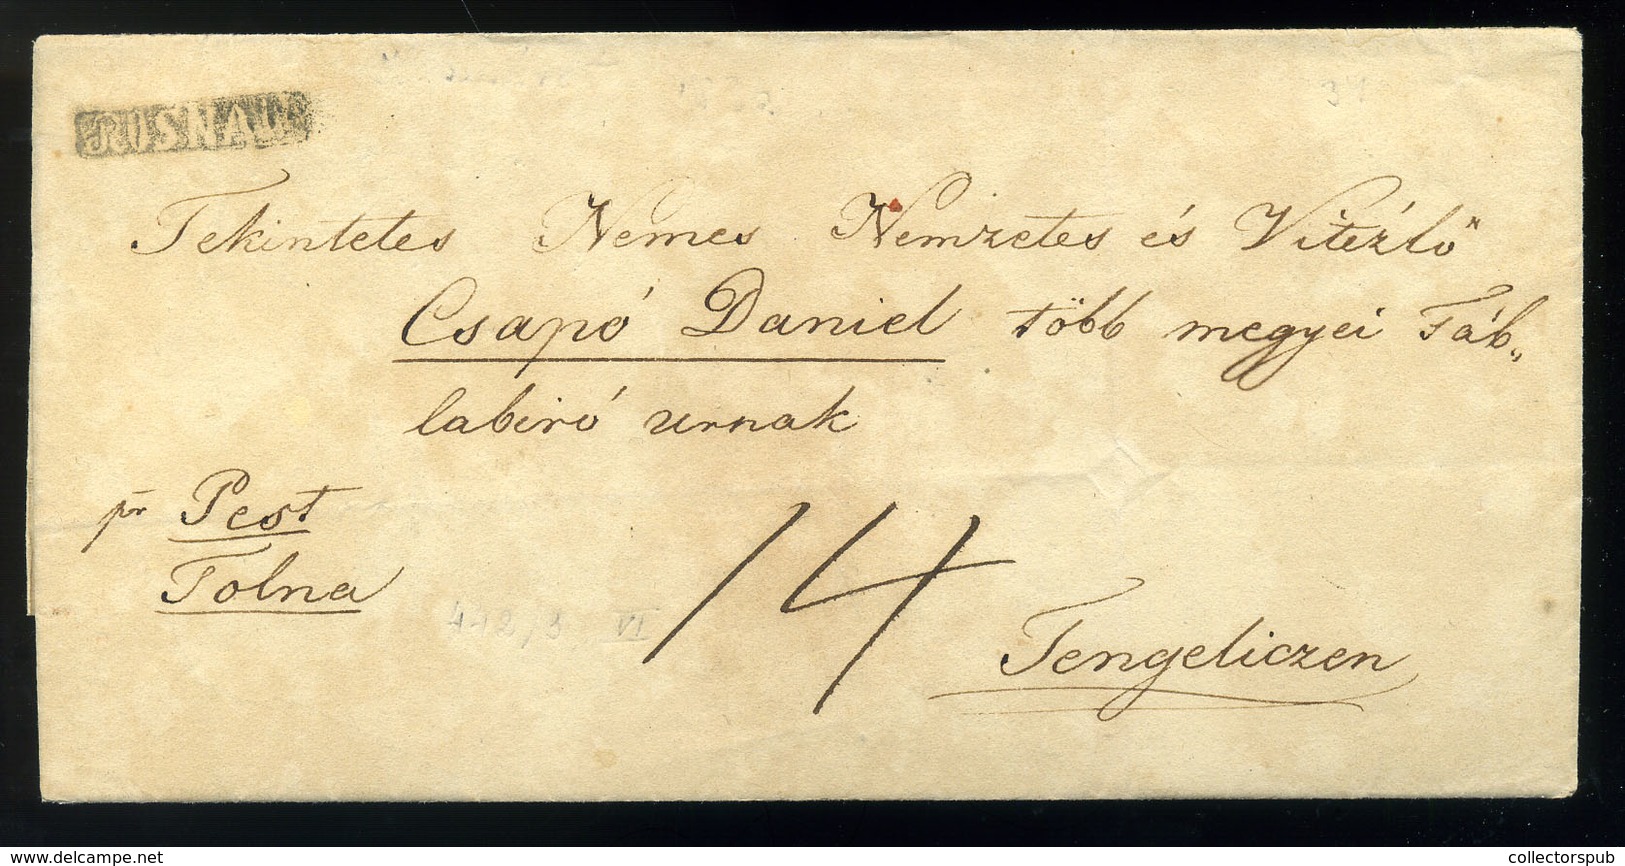 ROSNAU
Tekintetes Nemes Nemzetes és Vitézlő
Csapó Daniel több megyei Táb„
labiró urnak
pr Pest
Tolna
14
Tengeliczen
collectorspub